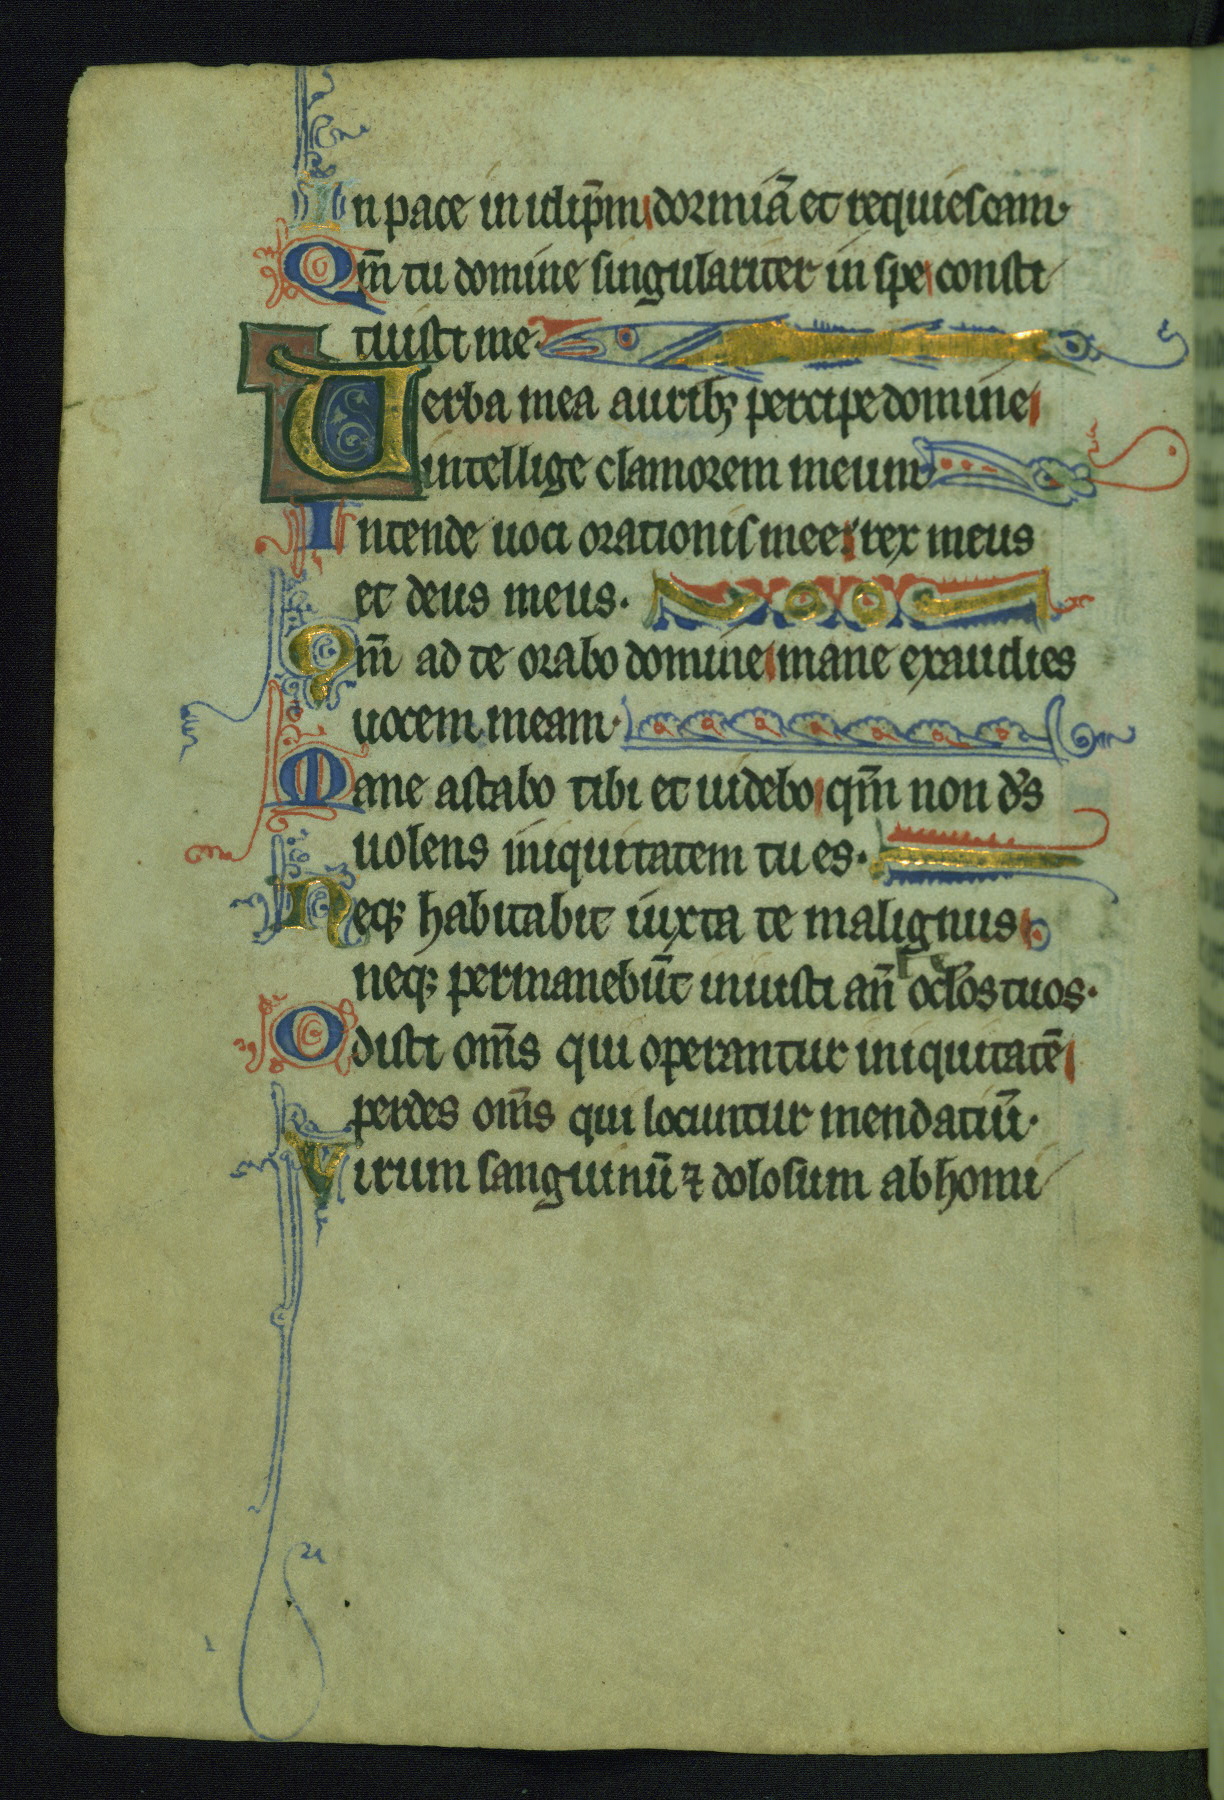 In pace in idip̄m dormiā et requiescam
Qm̄ tu domine singulariter in spe consti
tuisti me
Uerba mea aurib; percipe domine
intellige clamorem meum
Intende uoci orationis mee: rex meus
et deus meus.
Qm̄ ad te orabo domine mane exaudies
uocem meam.
Mane astabo tibi et uidebo qm̄ non d̄s
uolens iniquitatem tu es.
Neq; habitabit iuxta te malignus
neq; permanebūt iniusti an̄ oc̄los tuos.
Odisti om̄s qui operantur iniquitatē
perdes om̄s qui locuntur mendatiū.
Virum sanguinū ⁊ dolosum abhomi